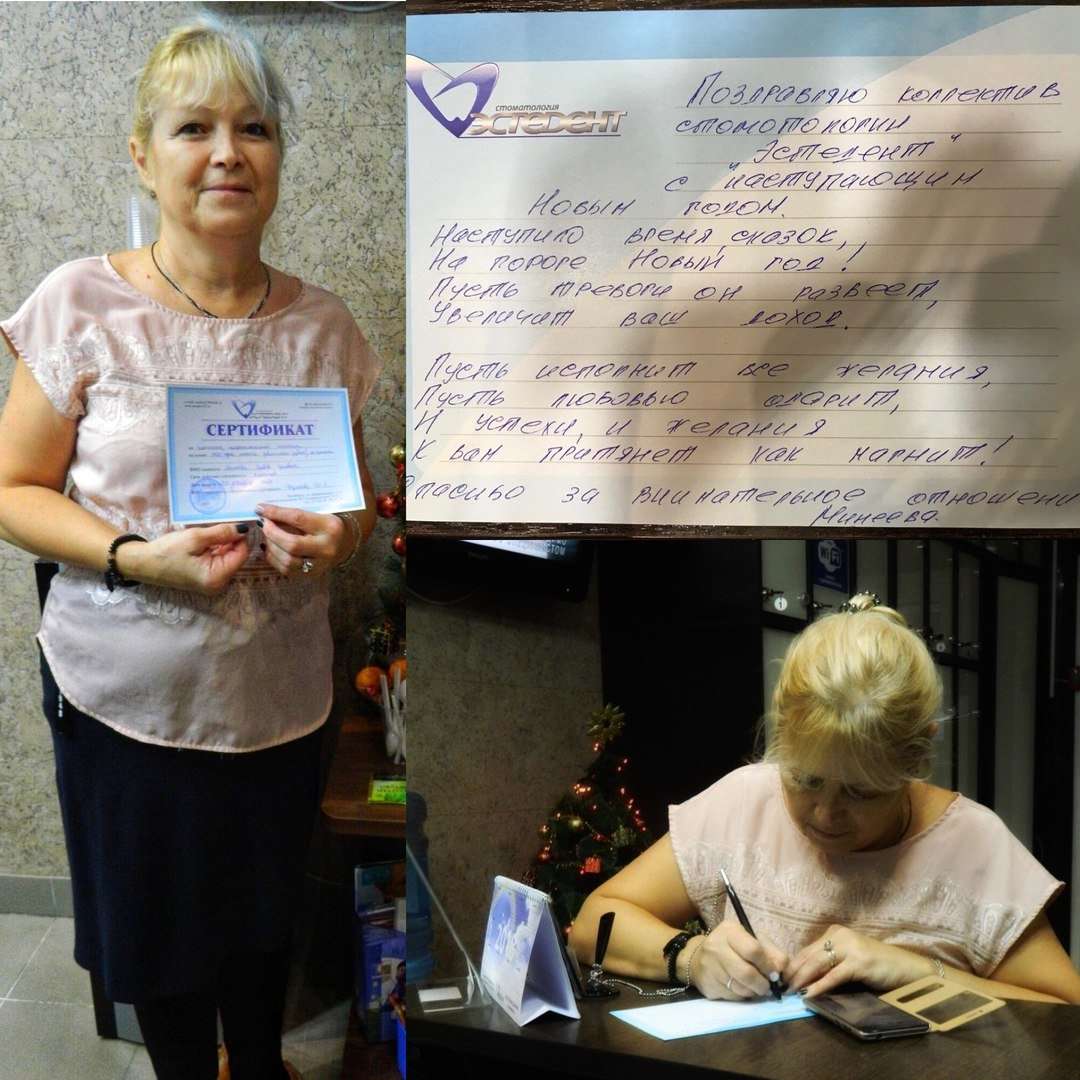 СЕРТИФИКАТ
стоматология
ЭСТЕДЕНТ
Поздравляю коллектив
стомотологии
"Эстедент"
с наступающин
Новын годом.
Наступило время, сказок,
На пороге Новый год!
Пусть тревоги он развеет,
Увеличит ваш доход.
Пусть исполнит все желания,
Пусть любовью одарит,
И успехи, и желания
К вам притянет как магнит!
Спасибо за внимательное отношени
Минеева.
WiFi